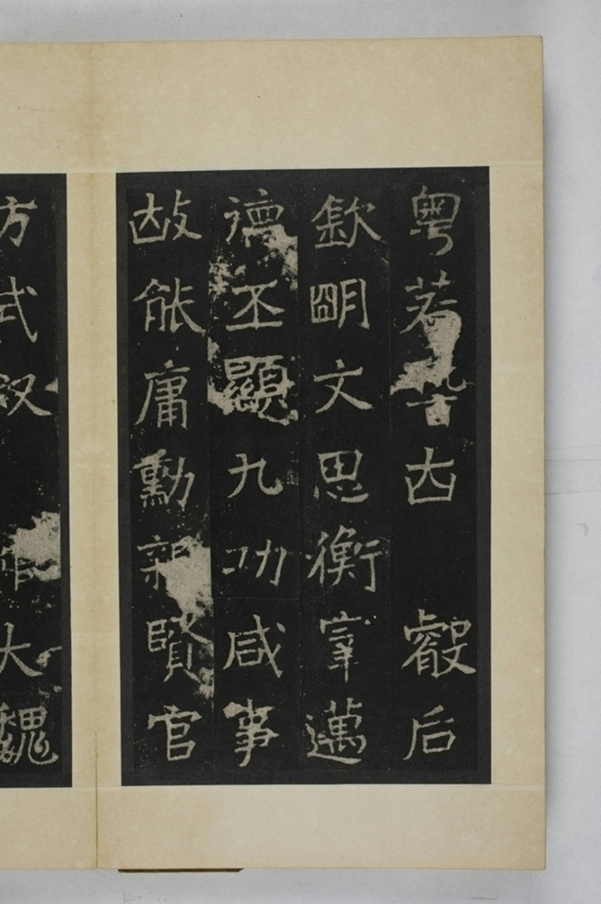 粤若稽古 叡后
欽明文思衡宰邁
德丕顯九功咸事
故能庸勳親賢官
方式 大魏